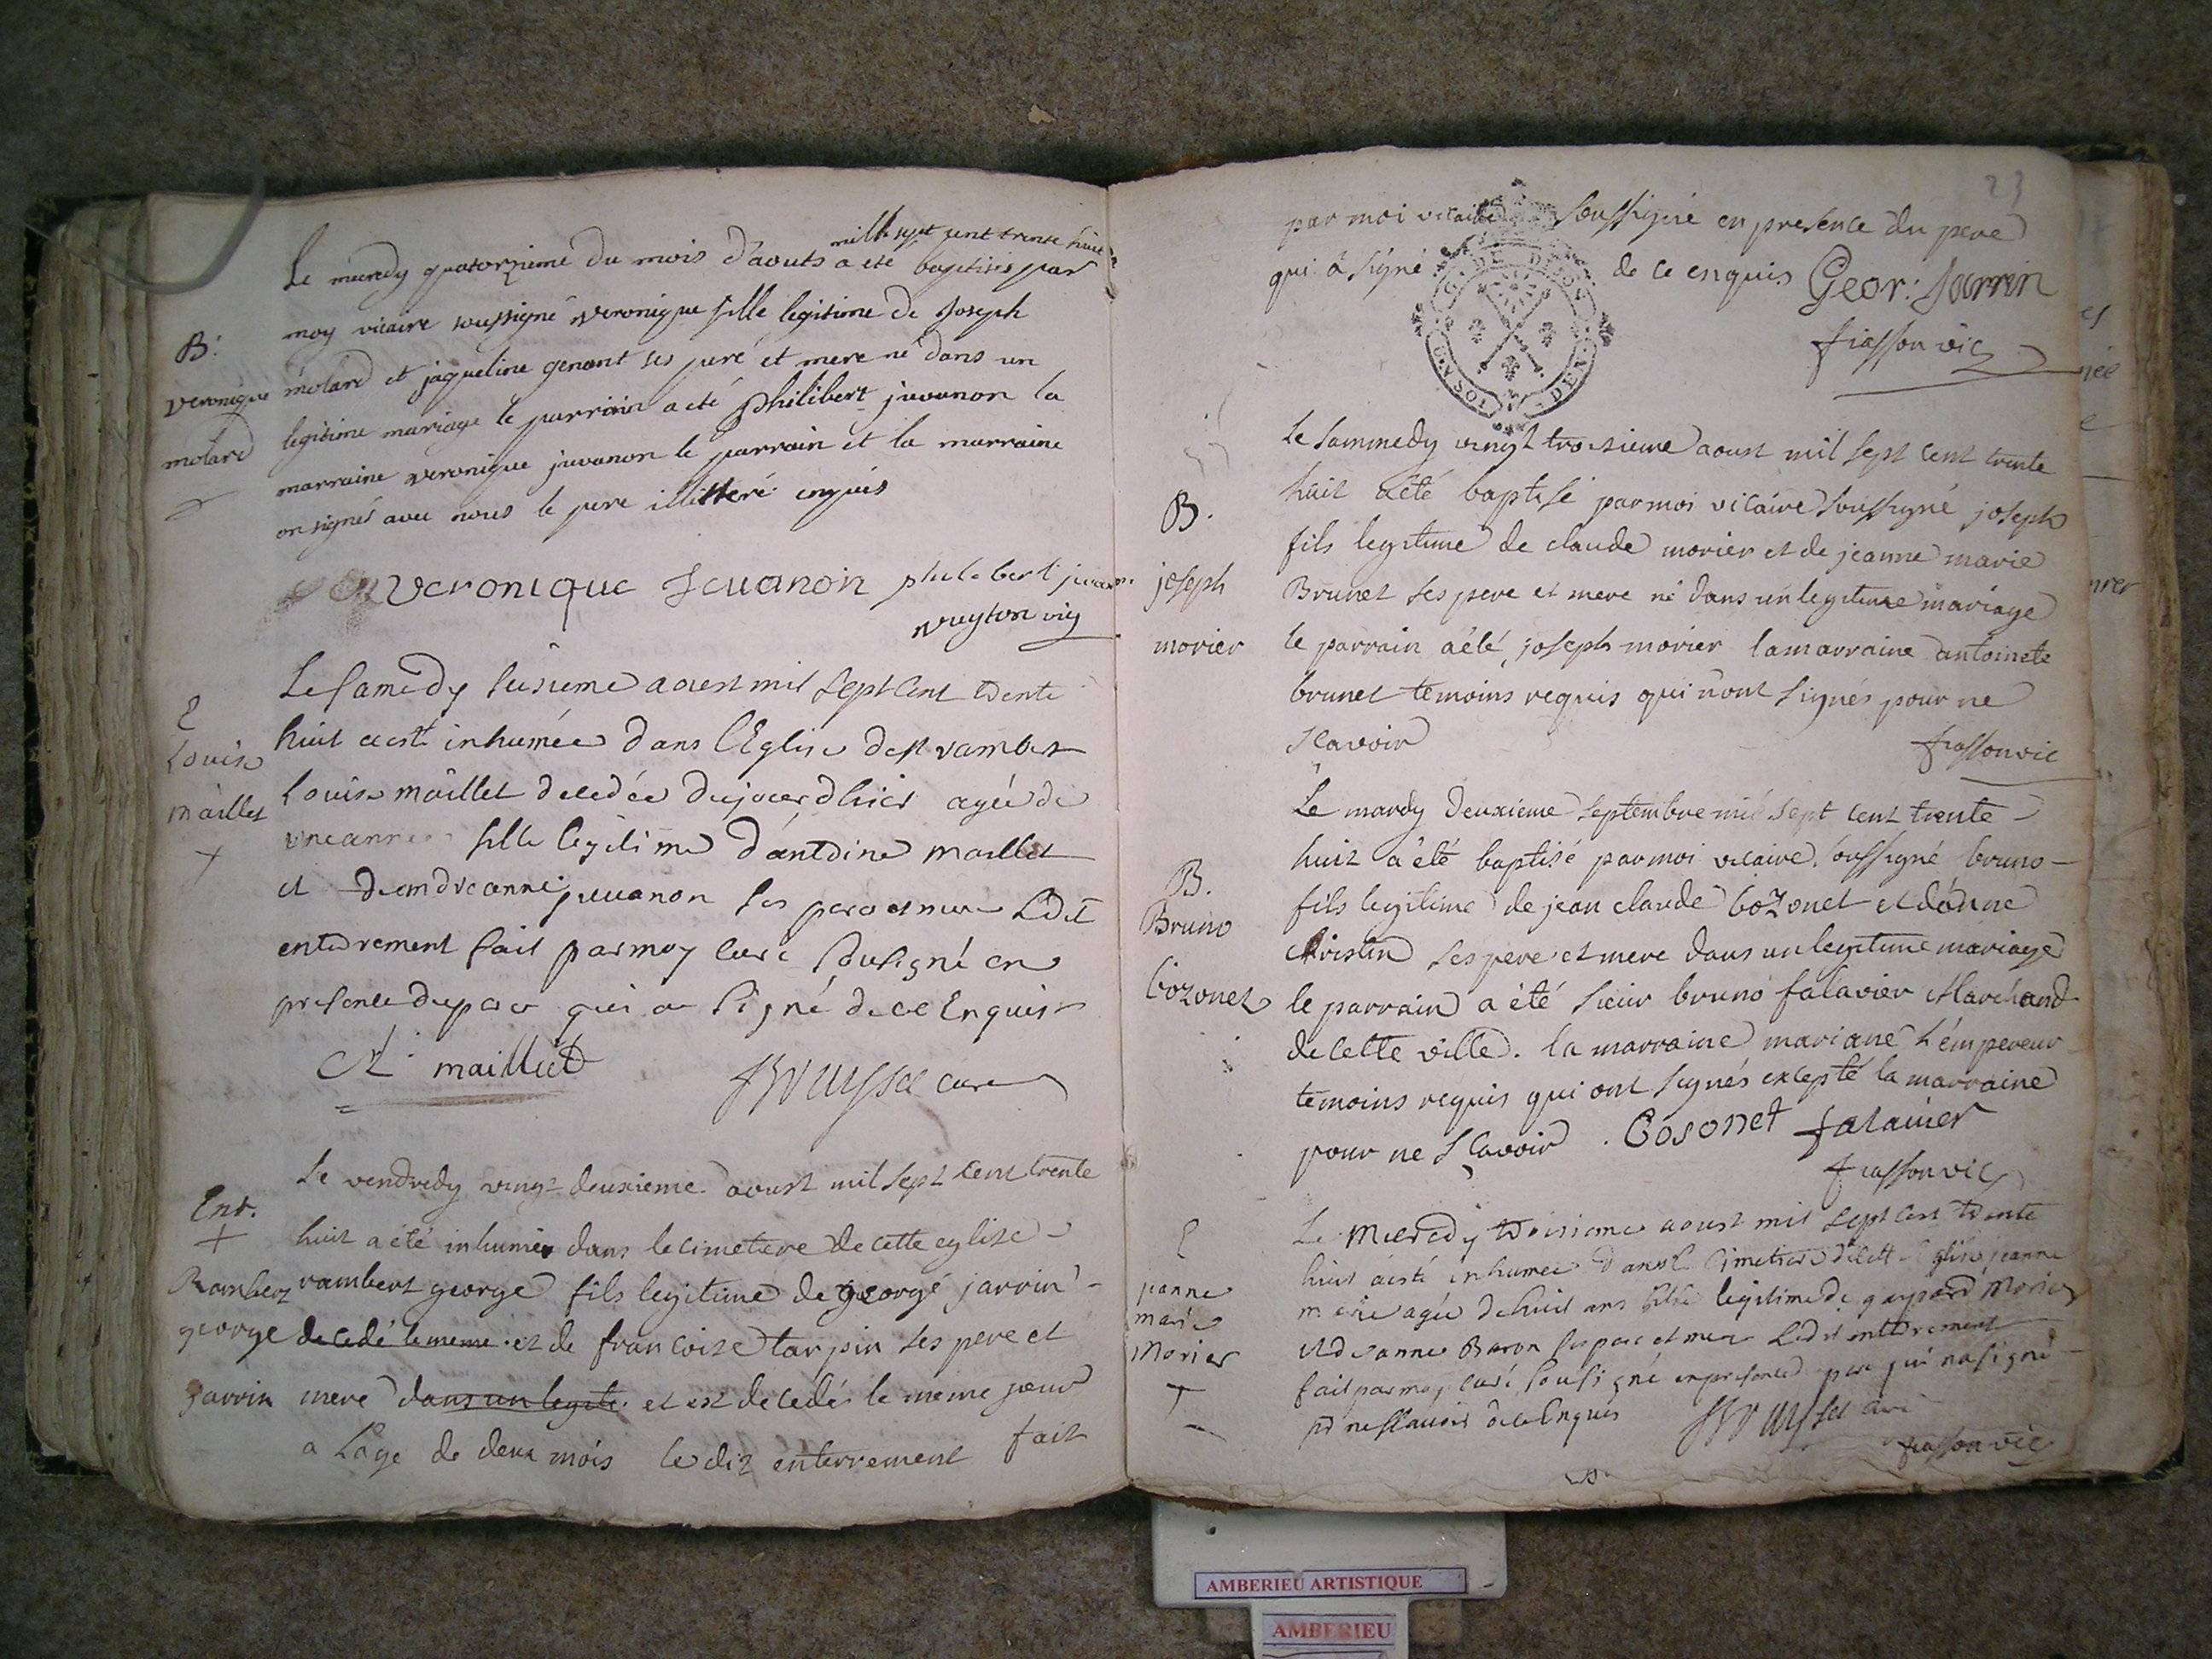 mille sept cent trente huit
Le mecredy quatorzieme du mois d'aouts a eté baptisés par
moy vicaire soussigné veronique fille legitime de Joseph
molard et jaqueline genant ses peré et mere né dans un
legitime mariage le parrain a eté philibert juvanon la
marraine veronique juvanon le parrain et la marraine
on signés avec nous le pere illitteré enquis
B.
veronique
molard
veronique Jeuanon philebert
vic
Le samedy seisieme aoust mil sept cent trente
huit a esté inhumée dans l'Eglise de st rambert
Louise maillet decedée du jourd'hier agée de
une année fille legitime d'antoine maillet
et d'andreanne juvanon ses pere et mere Ledit
enterrement fait par moy curé sousigné en
presence du pere qui a signé de ce Enquis
E
Louise
maillet
maillet
cure
Le vendredy vingt deuxieme aoust mil sept cent trente
huit a été inhumé dans le cimetiere de cette eglise
rambert george fils legitime de george jarrin
decedé le meme et de francoise tarpin ses pere et
mere dans un legiti et est decedé le meme jour
a l'age de deux mois le dit enterrement fait
Ent.
Rambert
george
jarrin
23
par moi vicaire soussigné en presence du pere
qui a signé de ce enquis Geor: Jarrin
frasson vic
Le sammedy vingt troisieme aoust mil sept cent trente
huit a été baptisé par moi vicaire soussigné joseph
fils legitime de claude morier et de jeanne marie
Brunet ses pere et mere né dans un legitime mariage
le parrain a été joseph morier la marraine antoinete
brunet temoins requis qui n'ont signés pour ne
scavoir
frasson vic
B.
joseph
morier
Le mardy deuxieme septembre mil sept cent trente
huit a été baptisé par moi vicaire soussigné bruno
fils legitime de jean claude bozonet et d'anne
christin ses pere et mere dans un legitime mariage
le parrain a été sieur bruno falavier Marchand
de cette ville. la marraine mariane l'empereur
temoins requis qui ont signés excepté la marraine
pour ne sçavoir. Bosonet falavier
frasson vic
B.
Bruno
bozonet
Le Mecredy troisieme aoust mil sept cent trente
huit a esté inhumée dans le cimetiere de cette Eglise jeanne
marie agée de huit ans fille legitime de gaspard Morier
et d'anne Baron ses pere et mere Ledit enterrement
fait par moy curé sousigné en presence du pere qui n'a signé
pr ne sçavoir de ce Enquis
frasson vic
E
jeanne
marie
Morier
AMBERIEU ARTISTIQUE
AMBERIEU